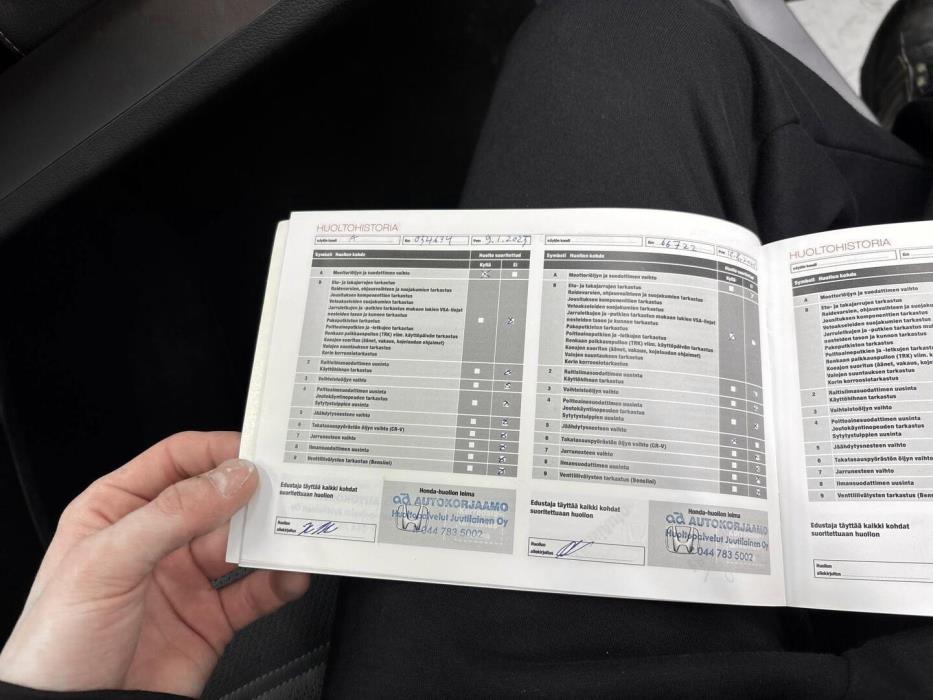 HUOLTOHISTORIA
Käytön koodi A Km 034674 Pvm 9.1.2023
Symboli Huollon kohde Huolto suoritettud
Kyllä Ei
A Moottoriöljyn ja suodattimen vaihto
B Etu- ja takajarrujen tarkastus
Raidevarsien, ohjausvaihteen ja suojakumien tarkastus
Jousituksen komponenttien tarkastus
Vetoakseleiden suojakumien tarkastus
Jarruletkujen ja -putkien tarkastus mukaan lukien VSA-linjat
nesteiden tason ja kunnon tarkastus
Pakoputkiston tarkastus
Polttoaineputkien ja -letkujen tarkastus
Renkaan paikkauspullon (TRK) viim. käyttöpäivän tarkastus
Koeajon suoritus (äänet, vakaus, kojelaudan ohjaimet)
Valojen suuntauksen tarkastus
Korin korroosiotarkastus
2 Raitisilmasuodattimen uusinta
Käyttöhihnan tarkastus
3 Vaihteistoöljyn vaihto
4 Polttoainesuodattimen uusinta
Joutokäyntinopeuden tarkastus
Sytytystulppien uusinta
5 Jäähdytysnesteen vaihto
6 Takatasauspyörästön öljyn vaihto (CR-V)
7 Jarrunesteen vaihto
8 Ilmansuodattimen uusinta
9 Venttiilivälysten tarkastus (Bensiini)
Edustaja täyttää kaikki kohdat
suoritettuaan huollon
Huollon
allekirjoitus
Honda-huollon leima
ad AUTOKORJAAMO
Huoltopalvelut Juutilainen Oy
044 783 5002
Käytön koodi Km 66722 Pvm
Symboli Huollon kohde Huolto suoritettud
Kyllä
A Moottoriöljyn ja suodattimen vaihto
B Etu- ja takajarrujen tarkastus
Raidevarsien, ohjausvaihteen ja suojakumien tarkastus
Jousituksen komponenttien tarkastus
Vetoakseleiden suojakumien tarkastus
Jarruletkujen ja -putkien tarkastus mukaan lukien VSA-linjat
nesteiden tason ja kunnon tarkastus
Pakoputkiston tarkastus
Polttoaineputkien ja -letkujen tarkastus
Renkaan paikkauspullon (TRK) viim. käyttöpäivän tarkastus
Koeajon suoritus (äänet, vakaus, kojelaudan ohjaimet)
Valojen suuntauksen tarkastus
Korin korroosiotarkastus
2 Raitisilmasuodattimen uusinta
Käyttöhihnan tarkastus
3 Vaihteistoöljyn vaihto
4 Polttoainesuodattimen uusinta
Joutokäyntinopeuden tarkastus
Sytytystulppien uusinta
5 Jäähdytysnesteen vaihto
6 Takatasauspyörästön öljyn vaihto (CR-V)
7 Jarrunesteen vaihto
8 Ilmansuodattimen uusinta
9 Venttiilivälysten tarkastus (Bensiini)
Edustaja täyttää kaikki kohdat
suoritettuaan huollon
Huollon
allekirjoitus
Honda-huollon leima
ad AUTOKORJAAMO
Huoltopalvelut Juutilainen Oy
044 783 5002
HUOLTOHISTORIA
Käytön koodi Km
Symboli Huollon kohde
A Moottoriöljyn ja suodattimen vaihto
B Etu- ja takajarrujen tarkastus
Raidevarsien, ohjausvaihteen ja suojakumien
Jousituksen komponenttien tarkastus
Vetoakseleiden suojakumien tarkastus
Jarruletkujen ja -putkien tarkastus
nesteiden tason ja kunnon tarkastus
Pakoputkiston tarkastus
Polttoaineputkien ja -letkujen
Renkaan paikkauspullon (TRK) viim.
Koeajon suoritus (äänet, vakaus,
Valojen suuntauksen tarkastus
Korin korroosiotarkastus
2 Raitisilmasuodattimen uusinta
Käyttöhihnan tarkastus
3 Vaihteistoöljyn vaihto
4 Polttoainesuodattimen uusinta
Joutokäyntinopeuden tarkastus
Sytytystulppien uusinta
5 Jäähdytysnesteen vaihto
6 Takatasauspyörästön öljyn
7 Jarrunesteen vaihto
8 Ilmansuodattimen uusinta
9 Venttiilivälysten tarkastus
Edustaja täyttää kaikki kohdat
suoritettuaan huollon
Huollon
allekirjoitus